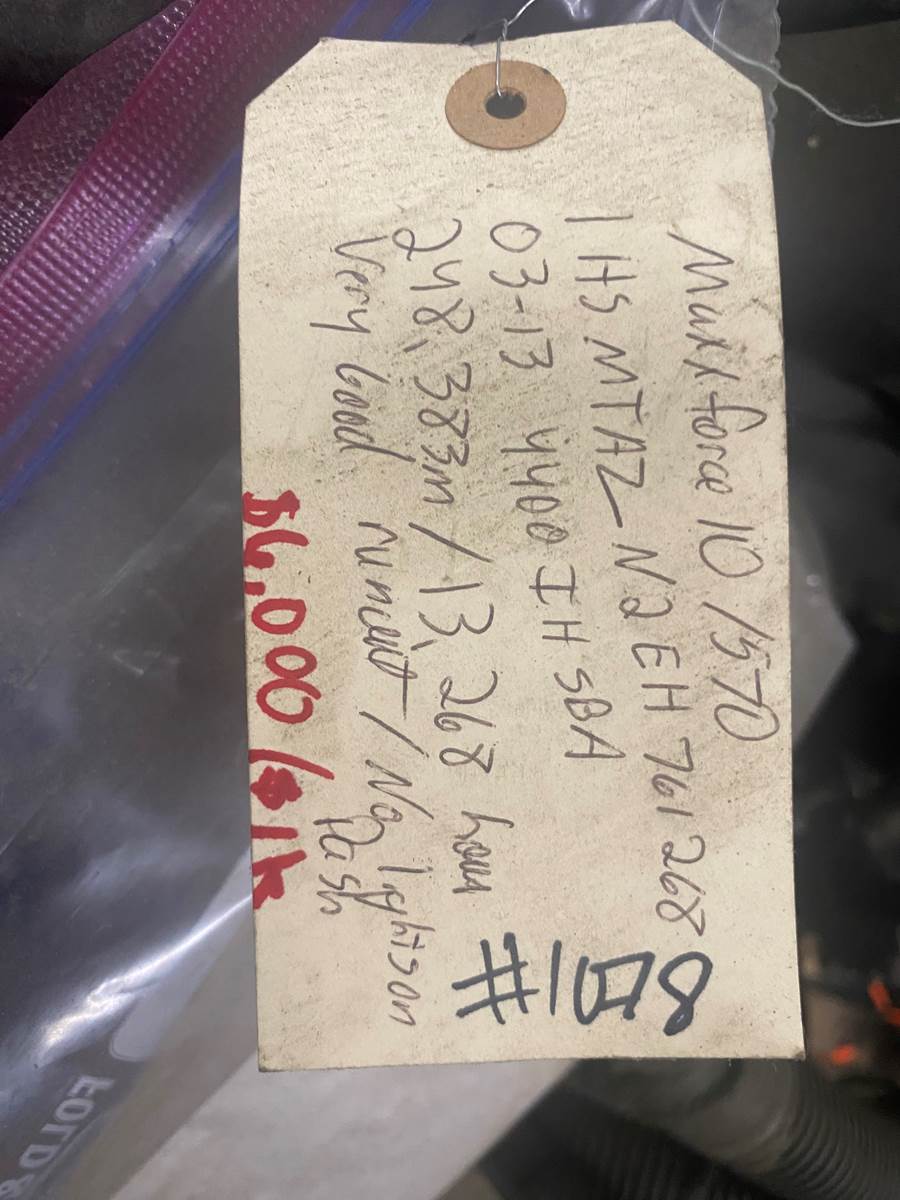 Maxxforce 10 / 570
1HSMTAZN2EH761268
03-13 4400 IHSBA
248,383m / 13,268 hour
Very Good runout / No lights on
Dash
$6,000 / $1k
FOLD &